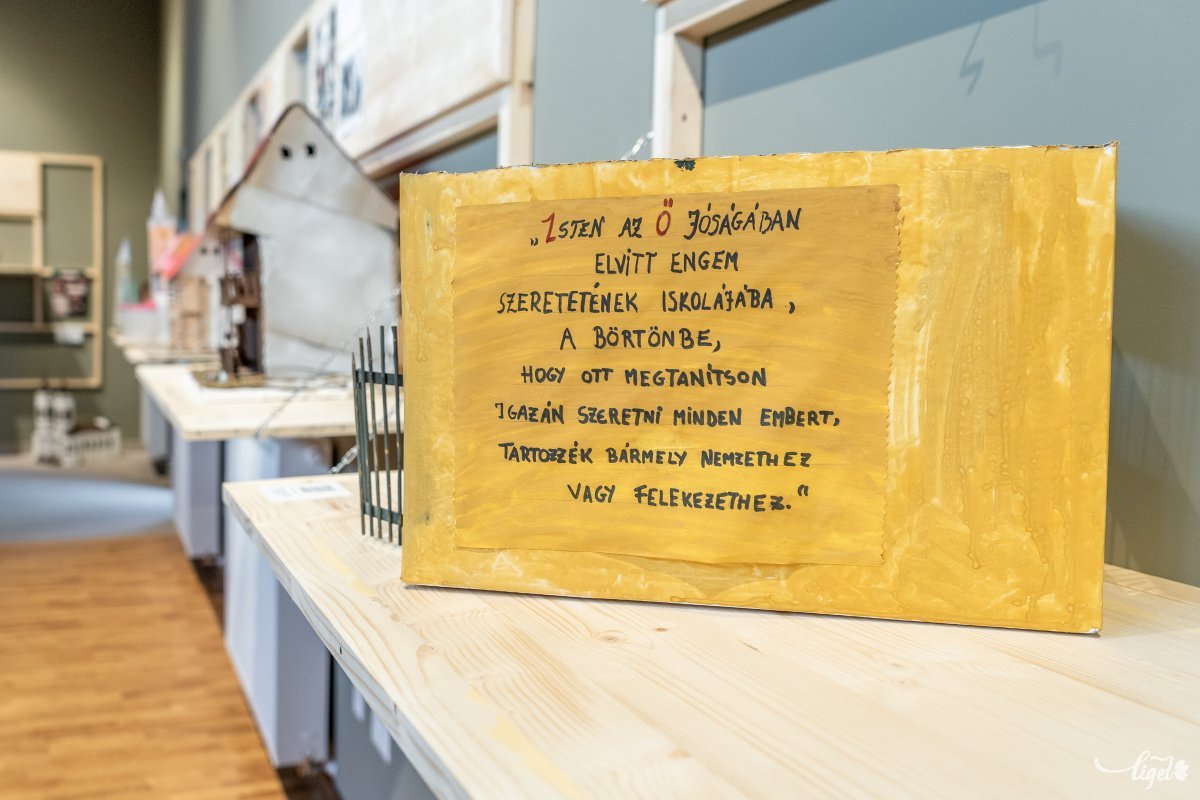 „ISTEN AZ Ő JÓSÁGÁBAN
ELVITT ENGEM
SZERETETÉNEK ISKOLÁJÁBA,
A BÖRTÖNBE,
HOGY OTT MEGTANÍTSON
IGAZÁN SZERETNI MINDEN EMBERT,
TARTOZZÉK BÁRMELY NEMZETHEZ
VAGY FELEKEZETHEZ.“
liget